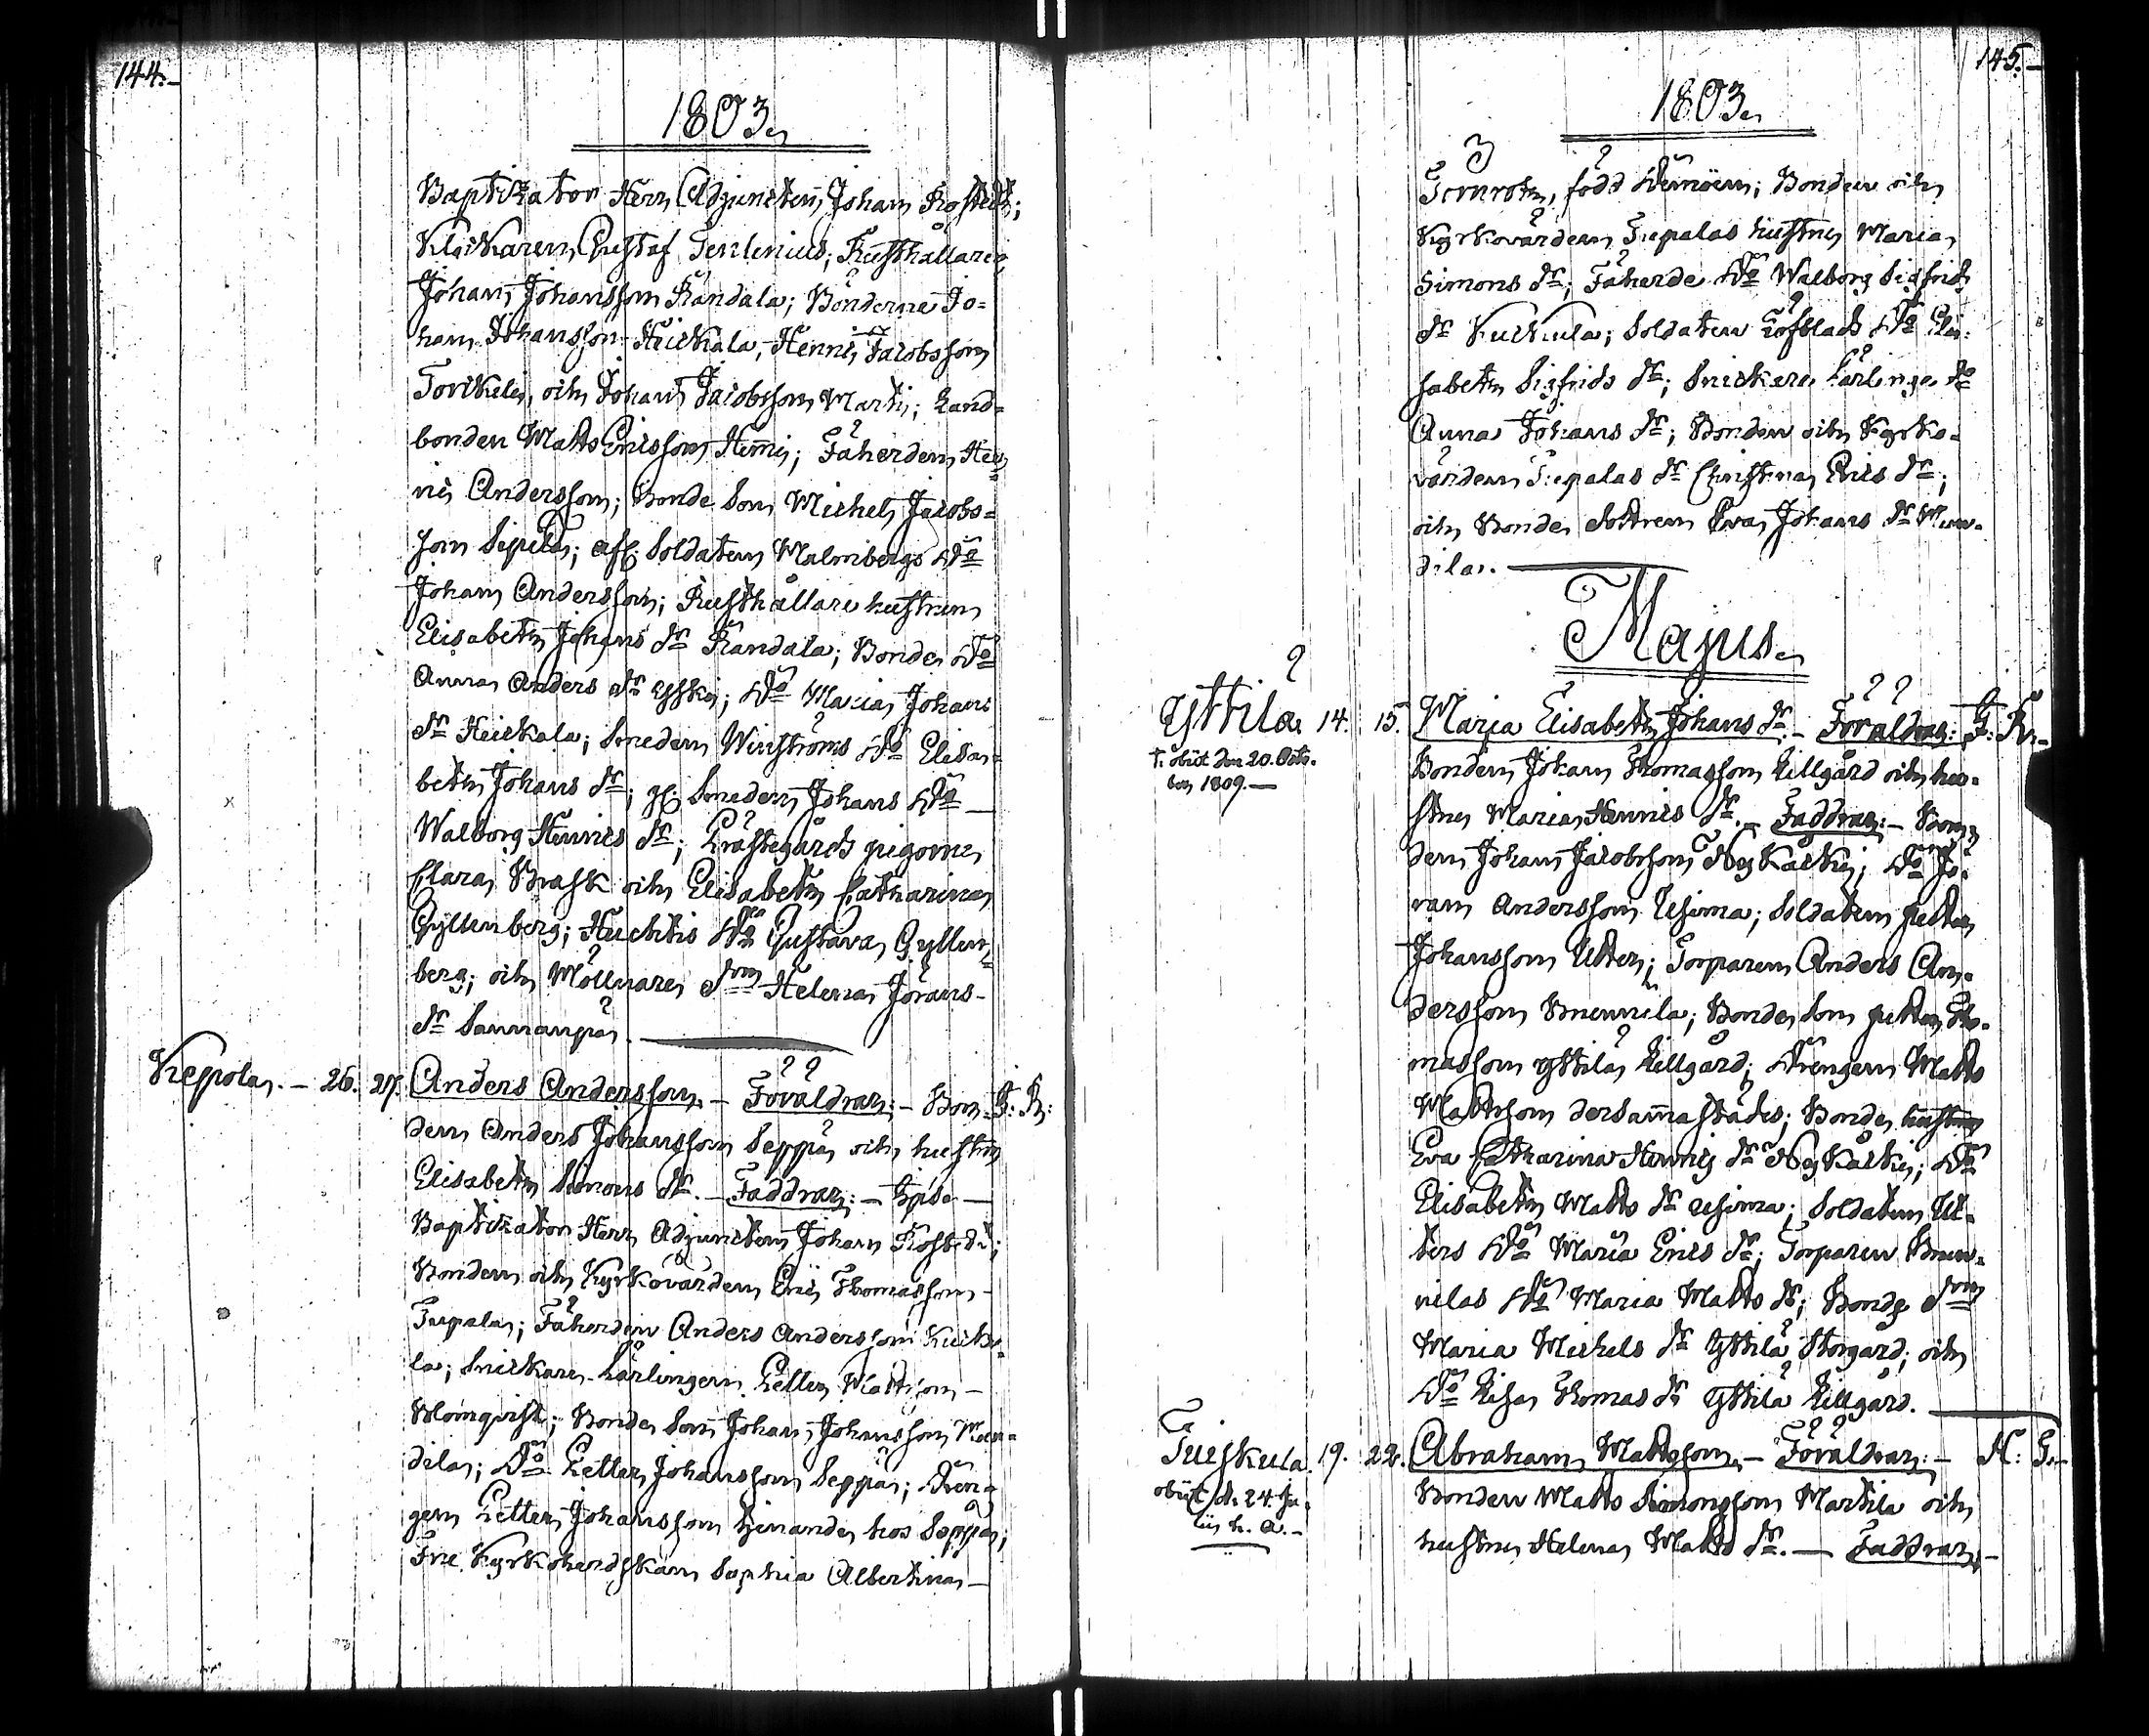 144.
1803.
Baptizator Herr Adjuncten Johan Rostedt;
Klåckaren Gustaf Tenlenius; Rusthållaren
Johan Johansson Kandala; Bönderne Jo-
han Johansson Heickala, Henric Jacobsson
Torickeli, och Johan Jacobsson Marti; Land-
bonden Matts Ericsson Hemmi; Fäherden Hen-
ric Andersson; Bonde Son Michel Jacobs-
son Sipilä; afsk. Soldaten Malmbergs Do
Johan Andersson; Rusthållare hustrun
Elisabeth Johans dr Kandala; Bonde Do
Anna Anders dr Yski; Do Maria Johans
dr Heickala; Smeden Winströms Do Elisa-
beth Johans dr; gl. Smeden Johans Do
Walborg Henrics dr; Prästegårds pigorne
Clara Brask och Elisabeth Catharina
Gyllenberg; Huchtis Do Gustava Gyllen-
berg; och Möllnare Dottren Helena Jörans
dr Sannanpää.
Kepola. - 26. 27. Anders Andersson. - Föräldrar: - Bon- F: R:
den Anders Johansson Seppä och hustru
Elisabeth Simons dr. - Faddrar: - Ipse
Baptizator Herr Adjuncten Johan Rostedt;
Bonden och Kyrkovärden Eric Thomasson
Tupala; Fäherden Anders Andersson Kucku-
la; Snickare Lärlingen Petter Mattsson
Blomqvist; Bonde Son Johan Johansson Man-
dila; Do Petter Johansson Seppä; Dren-
gen Petter Johansson tjenande hos Seppä;
Fru Kyrkoherdskan Sophia Albertina
145.
1803.
Tornroth, född Wemöen; Bonden och
Kyrkovärden Tupalas hustru Maria
Simons dr; Fäherde Do Walborg Sigfrids
dr Kuckula; Soldaten Löfblads Do Eli-
sabeth Sigfrids dr; Snickare Lärlinge Do
Anna Johans dr; Bonden och Kyrko-
värden Tupalas dr Christina Erics dr;
och Bonde Dottren Eva Johans dr Man-
dila.
Majus.
Yttilä 14. 15. Maria Elisabeth Johans dr. - Föräldrar: F: R.
†. obiit den 20. Octo-
ber 1809.
Bonden Johan Thomasson Lillgård och hu-
stru Maria Henrics dr. - Faddrar: - Bon-
den Johan Jacobsson Nykälki; Do Jö-
ran Andersson Uusima; Soldaten Petter
Johansson Utter; Torparen Anders An-
dersson Brunnila; Bonde Son Petter Tho-
masson Yttilä Lillgård; Drengen Matts
Mattsson dersammastädes; Bonde hustrun
Eva Catharina Henrics dr Nykälki; Do
Elisabeth Matts dr Uusima; Soldaten Ut-
ters Do Maria Erics dr; Torparen Brun-
nilas Do Maria Matts dr; Bonde Dottren
Maria Michels dr Yttilä Storgård; och
Do Lisa Thomas dr Yttilä Lillgård.
Tuiskula 19. 22. Abraham Mattsson. - Föräldrar: - H: G.
obiit d. 24. Ju-
lii h. a.
Bonden Matts Simonsson Martila och
hustru Helena Matts dr. - Faddrar: